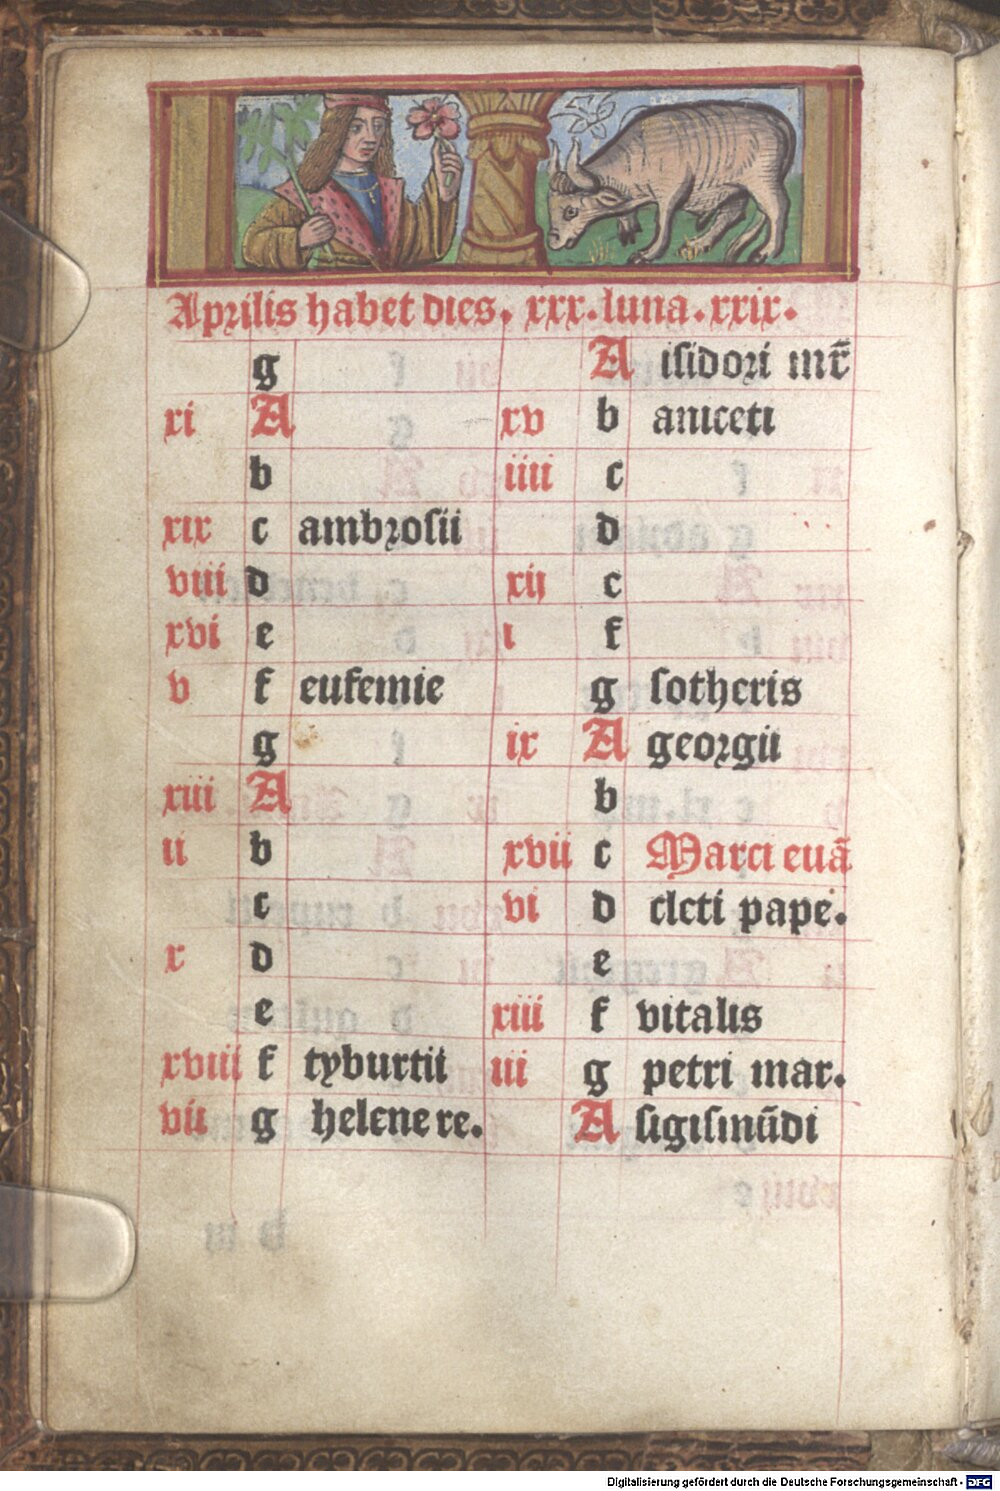 Aprilis habet dies. xxx. luna. xxix.
g
xi A
b
xix c ambrosii
viii d
xvi e
v f eufemie
g
xiii A
ii b
c
x d
e
xviii f tyburtii
vii g helene re.
A isidori mr̄
xv b aniceti
iiii c
d
xij e
i f
g sotheris
ix A georgii
b
xvii c Marci euā
vi d cleti pape.
e
xiiii f vitalis
iii g petri mar.
A sigismūdi
Digitalisierung gefördert durch die Deutsche Forschungsgemeinschaft - DFG